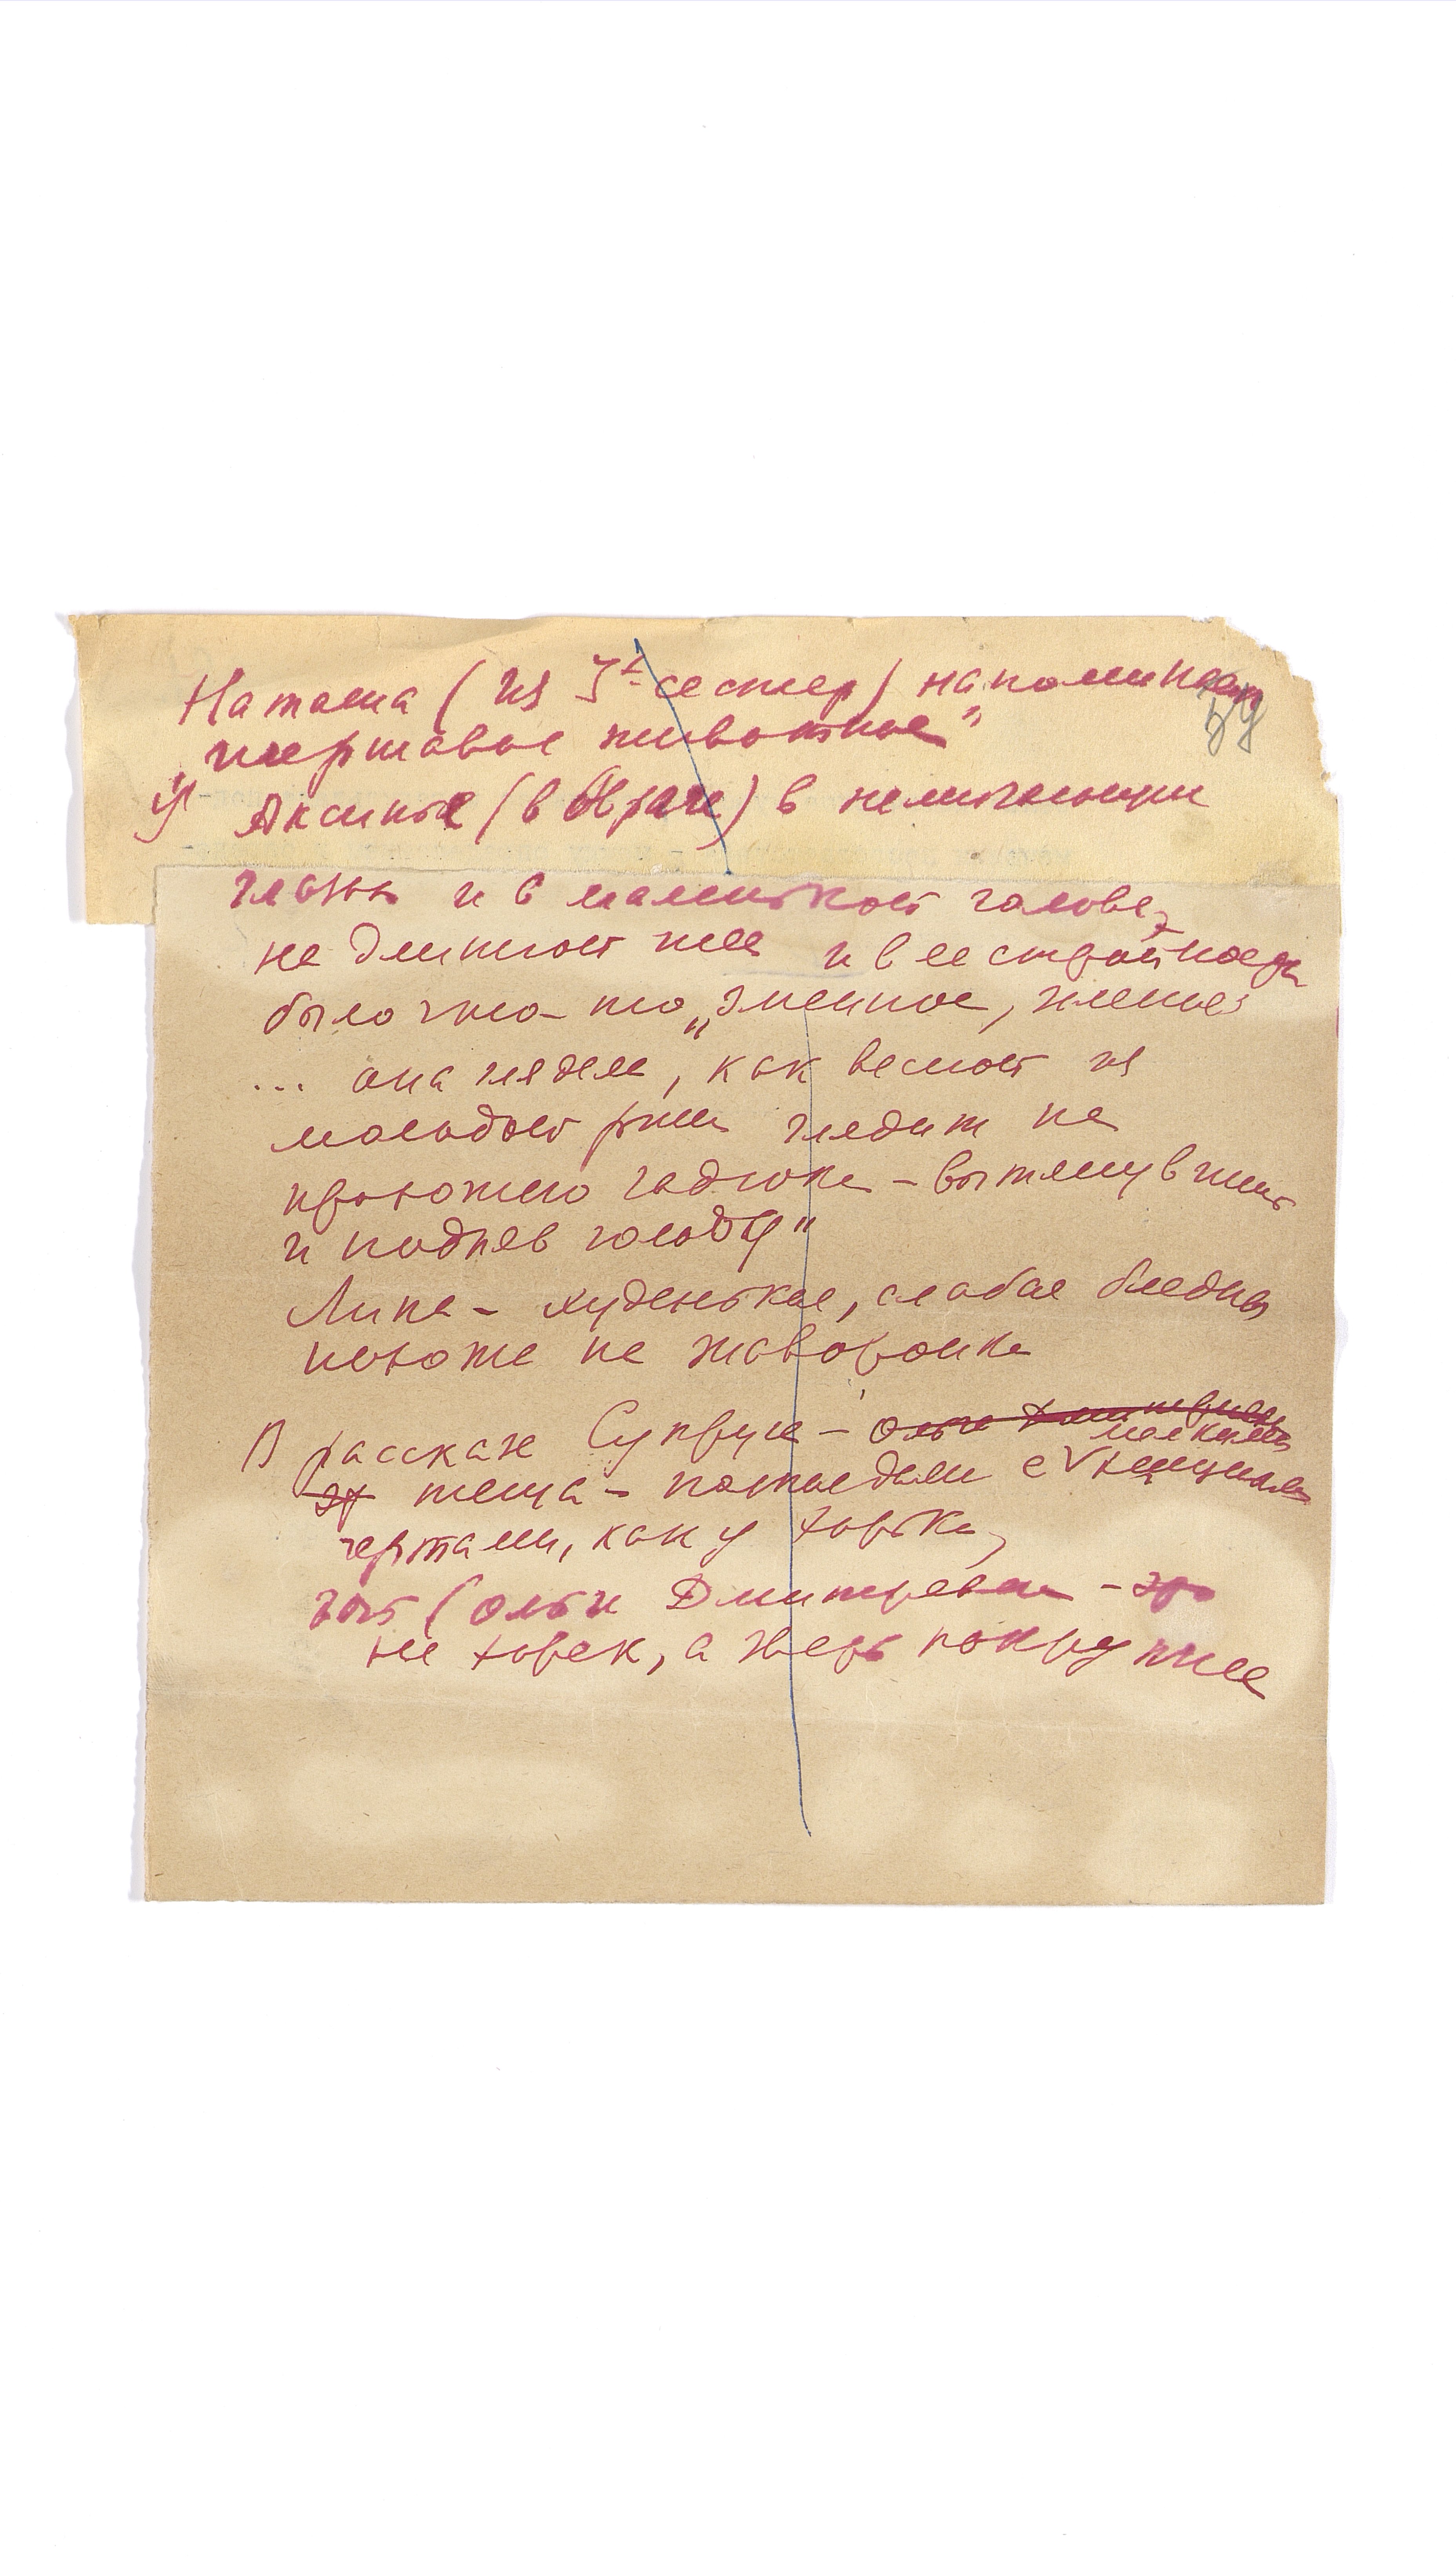 Наташа (из 3х сестер) напоминает
59
„шершавое животное"
У Аксиньи (в Овраге) в немигающих
глазах и в маленькой голове
на длинной шее и в ее стройности
было что-то „змеиное, зменое
... она глядела, как весной из
молодой ржи глядит на
прохожего гадюка - вытянувшись
и подняв голову"
Липа - худенькая, слабая бледная
похожа на жаворонка
В рассказе Супруга - Ольга Дмитриевна
мелкими
эт теща - полная дама с хищными
чертами, как у хорька,
дочь (Ольга Дмитревна - это
не хорек, а зверь покрупнее